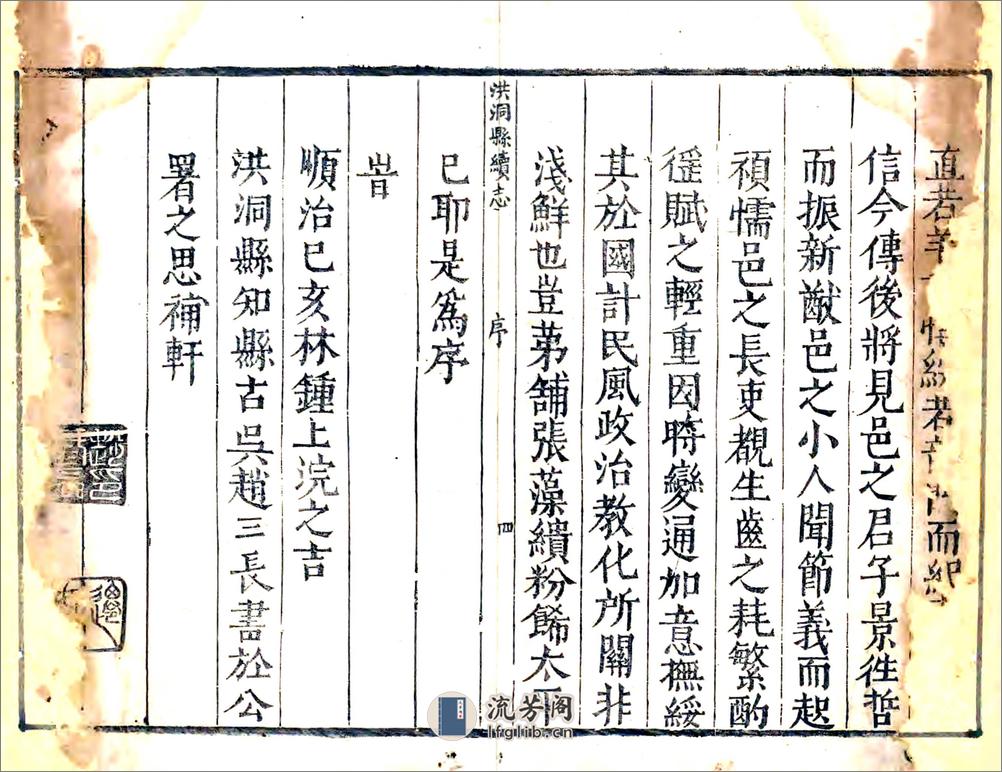 直若
者
而
信今傳後將見邑之君子景徃哲
而振新猷邑之小人聞節義而起
頑懦邑之長吏覩生齒之耗繁酌
徭賦之輕重因時變通加意撫綏
其於國計民風政治教化所關非
淺鮮也豈苐舗張藻繢粉餙太平
已耶是爲序
洪洞縣續志
序
四
旹
順治己亥林鍾上浣之吉
洪洞縣知縣古吳趙三長書於公
署之思補軒
流芳阁
lfglib.cn